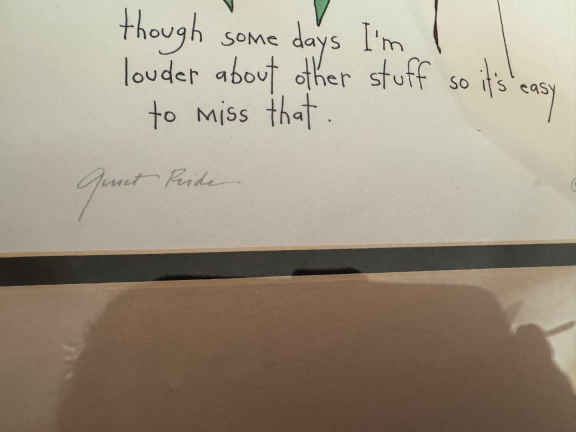 though some days I'm
louder about other stuff so it's easy
to miss that.
Quiet Pride